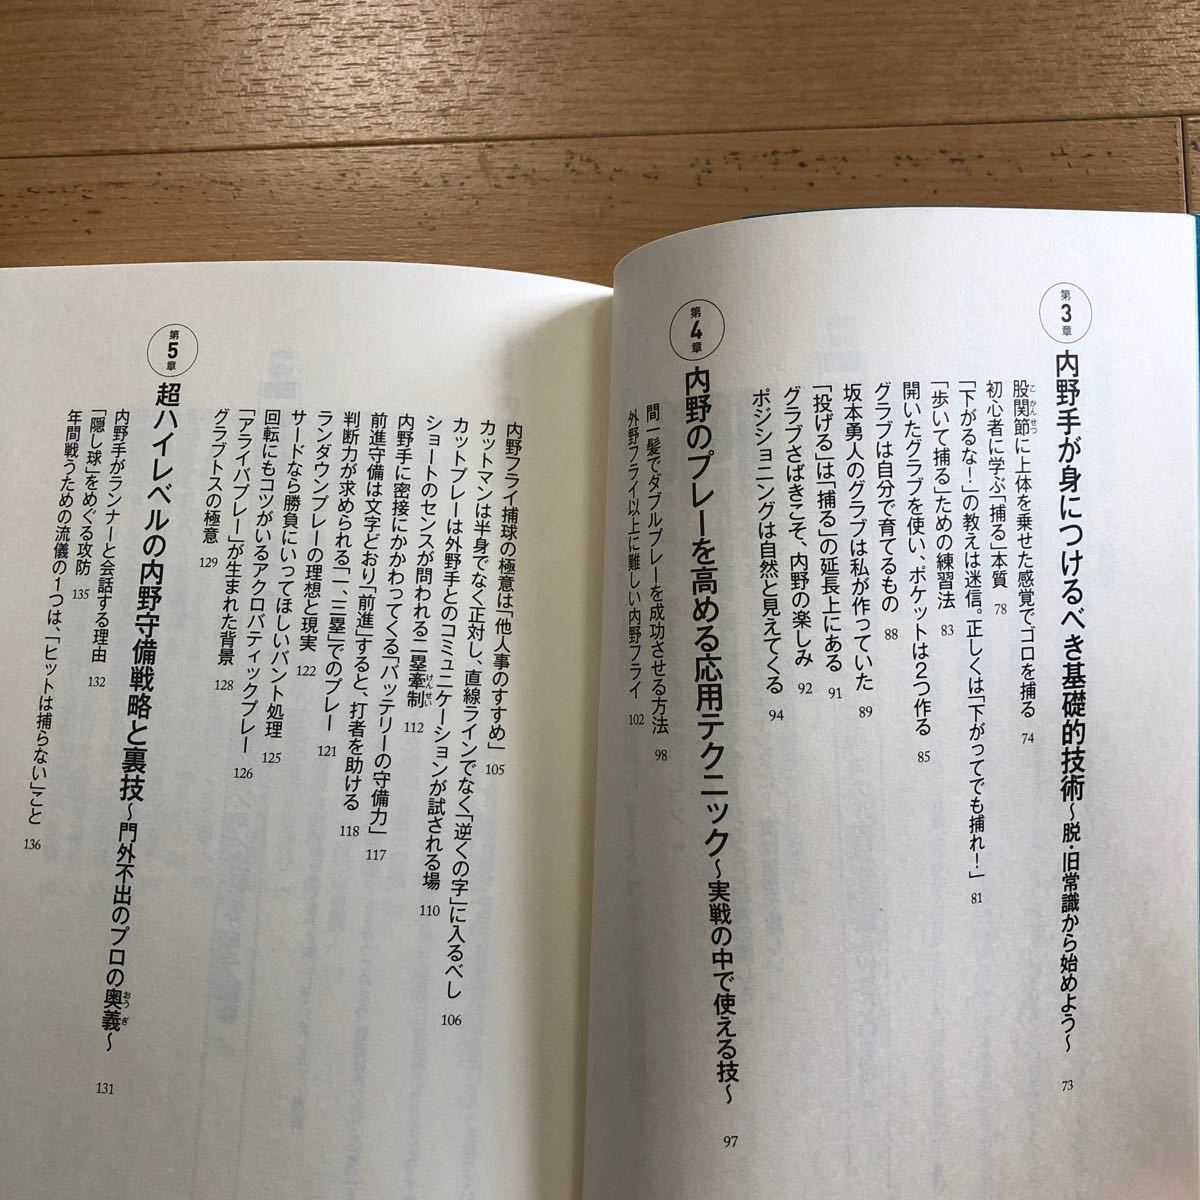 第3章 内野手が身につけるべき基礎的技術〜脱・旧常識から始めよう〜 73
股関節に上体を乗せた感覚でゴロを捕る 74
初心者に学ぶ「捕る」本質 78
「下がるな！」の教えは迷信。正しくは「下がってでも捕れ！」 81
「歩いて捕る」ための練習法 83
開いたグラブを使い、ポケットは2つ作る 85
グラブは自分で育てるもの 88
坂本勇人のグラブは私が作っていた 89
「投げる」は「捕る」の延長上にある 91
グラブさばきこそ、内野の楽しみ 92
ポジショニングは自然と見えてくる 94
第4章 内野のプレーを高める応用テクニック〜実戦の中で使える技〜 97
間一髪でダブルプレーを成功させる方法 98
外野フライ以上に難しい内野フライ 102
内野フライ捕球の極意は「他人事のすすめ」 105
カットマンは半身でなく正対し、直線ラインでなく「逆くの字」に入るべし 106
カットプレーは外野手とのコミュニケーションが試される場 110
ショートのセンスが問われる二塁牽制 112
内野手に密接にかかわってくる「バッテリーの守備力」 117
前進守備は文字どおり「前進」すると、打者を助ける 118
判断力が求められる「一、三塁」でのプレー 121
ランダウンプレーの理想と現実 122
サードなら勝負にいってほしいバント処理 125
回転にもコツがいるアクロバティックプレー 126
「アライバプレー」が生まれた背景 128
グラブトスの極意 129
第5章 超ハイレベルの内野守備戦略と裏技〜門外不出のプロの奥義〜 131
内野手がランナーと会話する理由 132
「隠し球」をめぐる攻防 135
年間戦うための流儀の1つは、「ヒットは捕らない」こと 136